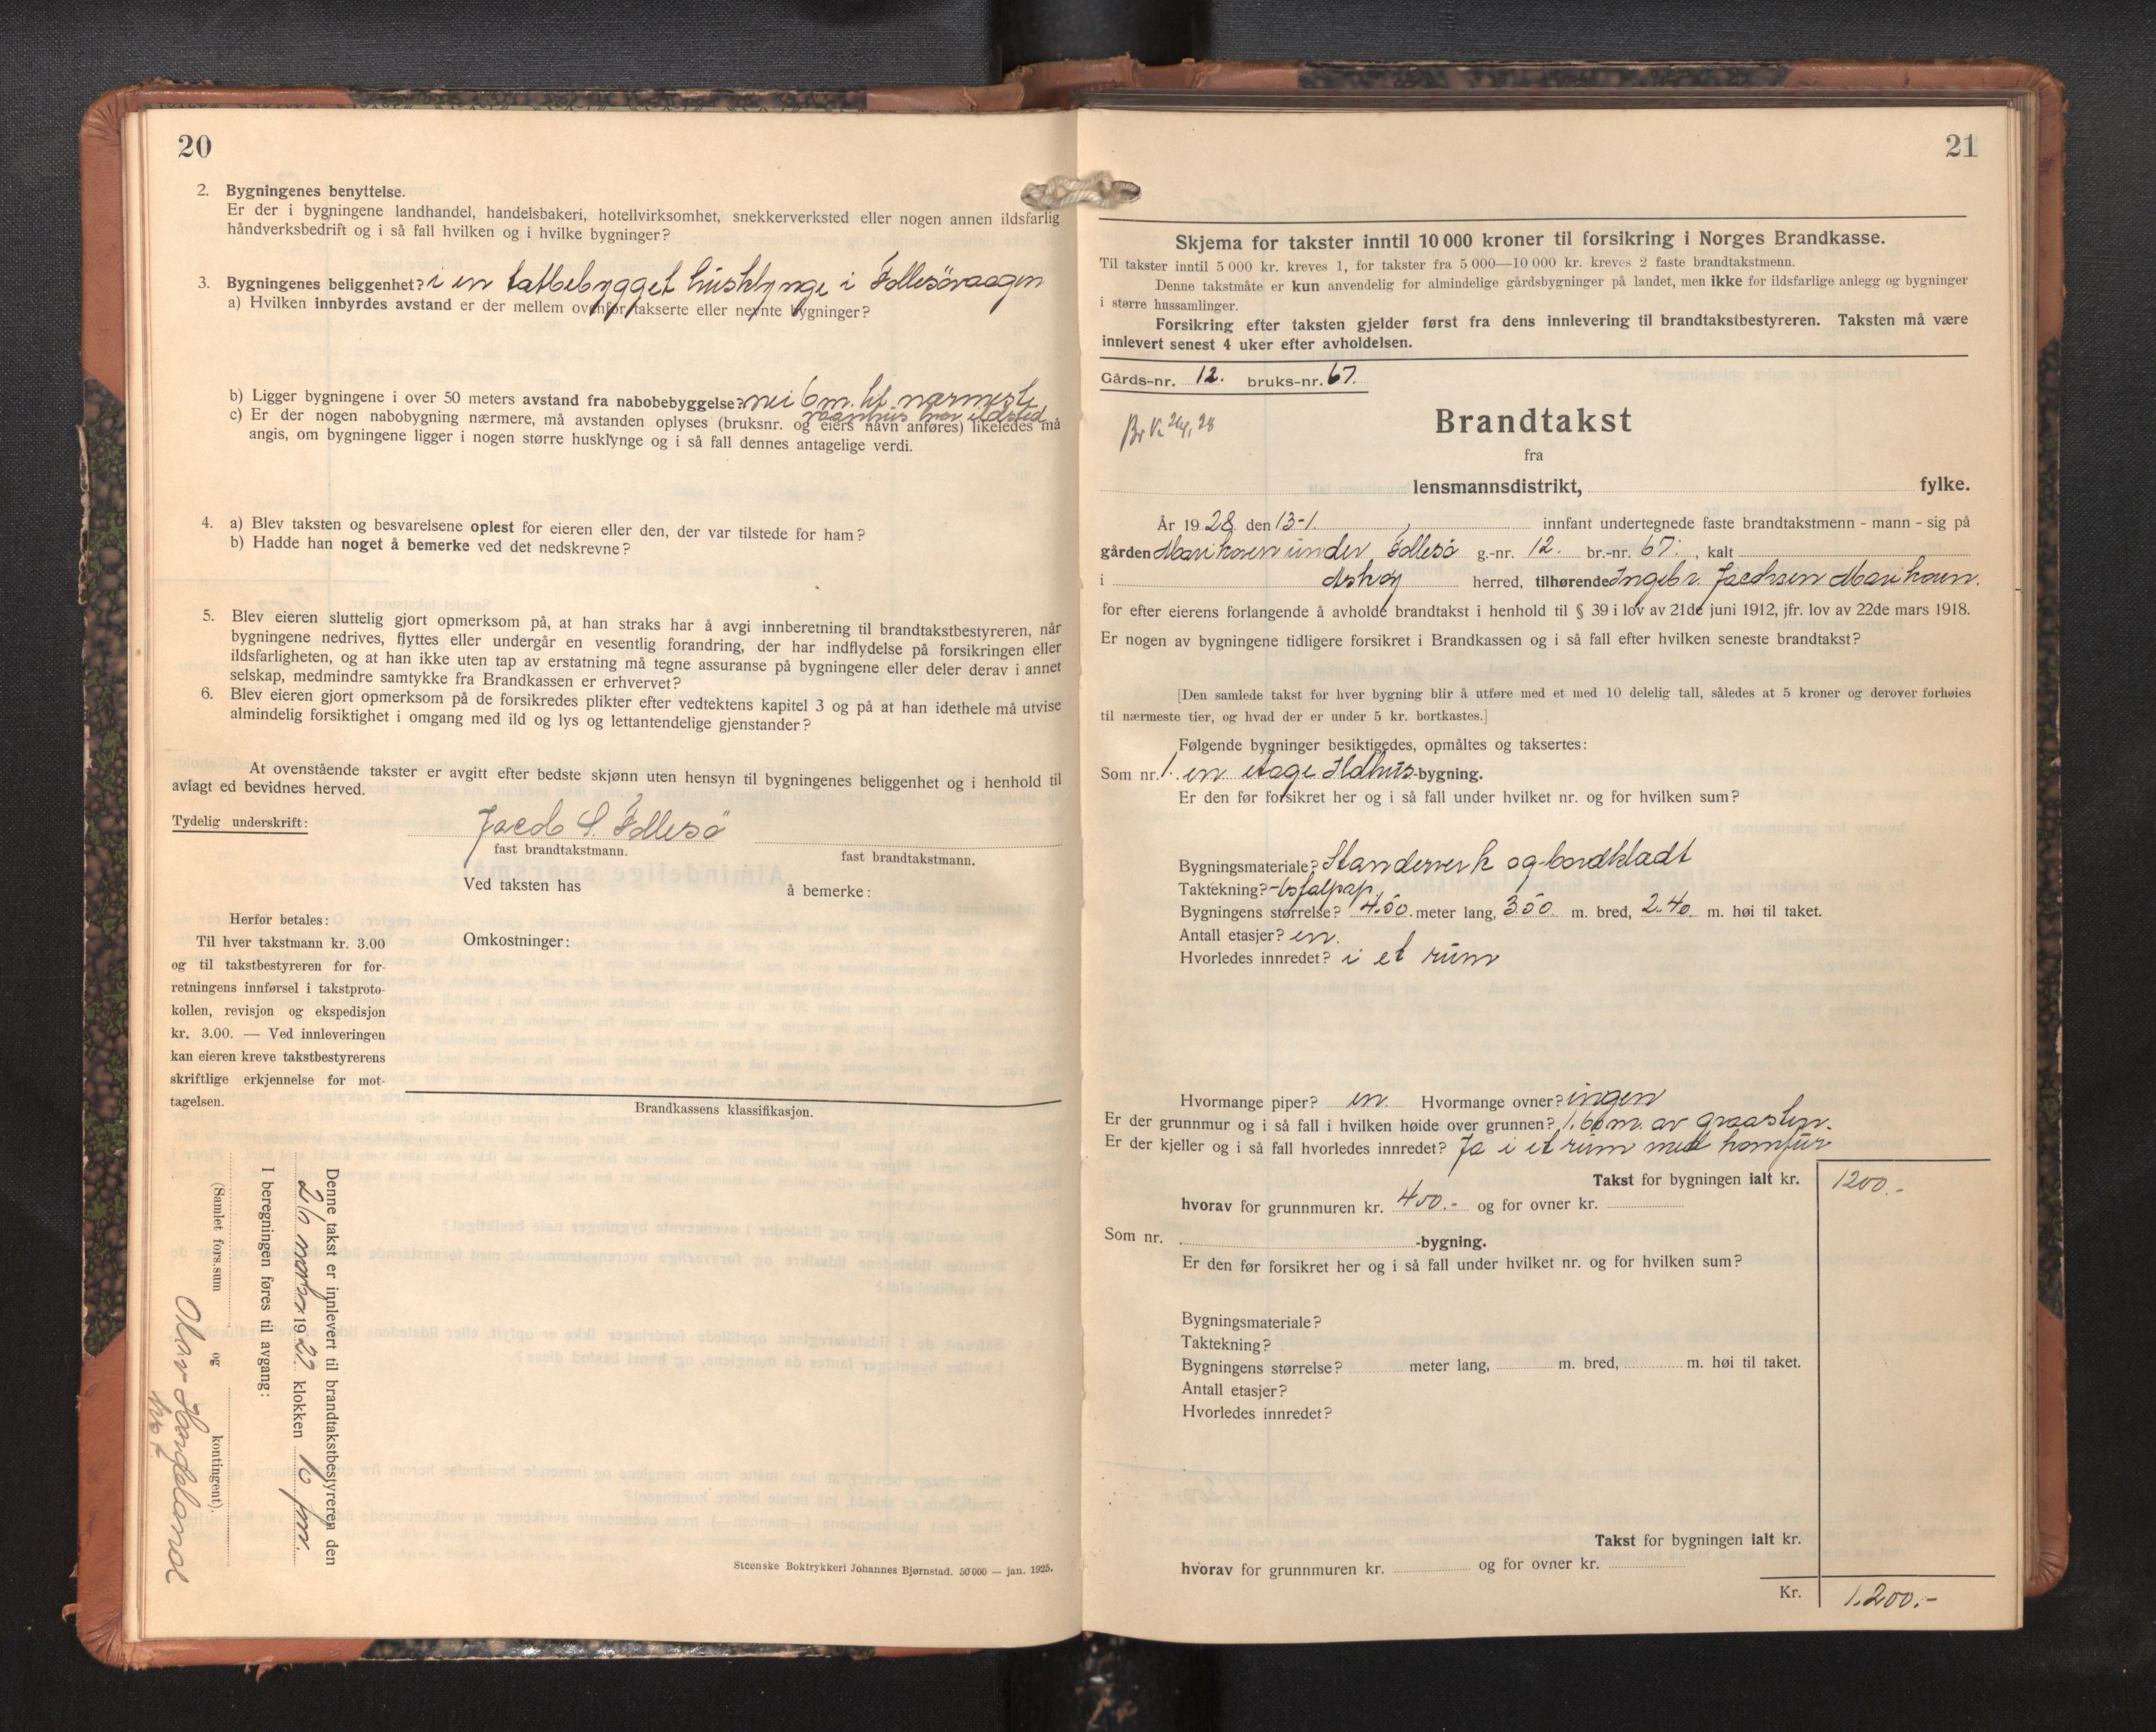 20
2. Bygningenes benyttelse.
Er der i bygningene landhandel, handelsbakeri, hotellvirksomhet, snekkerverksted eller nogen annen ildsfarlig
håndverksbedrift og i så fall hvilken og i hvilke bygninger?
3. Bygningenes beliggenhet? i en tætbebygget husklynge i Follesøvaagen
a) Hvilken innbyrdes avstand er der mellem ovenfor takserte eller nevnte bygninger?
b) Ligger bygningene i over 50 meters avstand fra nabobebyggelse? nei 6 m. til nærmeste
vaanhus har ildsted
c) Er der nogen nabobygning nærmere, må avstanden oplyses (bruksnr. og eiers navn anføres) likeledes må
angis, om bygningene ligger i nogen større husklynge og i så fall dennes antagelige verdi.
4. a) Blev taksten og besvarelsene oplest for eieren eller den, der var tilstede for ham?
b) Hadde han noget å bemerke ved det nedskrevne?
5. Blev eieren sluttelig gjort opmerksom på, at han straks har å avgi innberetning til brandtakstbestyreren, når
bygningene nedrives, flyttes eller undergår en vesentlig forandring, der har indflydelse på forsikringen eller
ildsfarligheten, og at han ikke uten tap av erstatning må tegne assuranse på bygningene eller deler derav i annet
selskap, medmindre samtykke fra Brandkassen er erhvervet?
6. Blev eieren gjort opmerksom på de forsikredes plikter efter vedtektens kapitel 3 og på at han idethele må utvise
almindelig forsiktighet i omgang med ild og lys og lettantendelige gjenstander?
At ovenstående takster er avgitt efter bedste skjønn uten hensyn til bygningenes beliggenhet og i henhold til
avlagt ed bevidnes herved.
Tydelig underskrift: Jacob S. Follesö
fast brandtakstmann. fast brandtakstmann.
Ved taksten has å bemerke:
Herfor betales:
Til hver takstmann kr. 3.00
og til takstbestyreren for for-
retningens innførsel i takstproto-
kollen, revisjon og ekspedisjon
kr. 3.00. — Ved innleveringen
kan eieren kreve takstbestyrerens
skriftlige erkjennelse for mot-
tagelsen.
Omkostninger:
Brandkassens klassifikasjon.
Denne takst er innlevert til brandtakstbestyreren den
19 klokken 10 fm.
I beregningen føres til avgang:
(Samlet fors.sum og kontingent).
Olav Hordeland
Steenske Boktrykkeri Johannes Bjørnstad. 50 000 — jan. 1925.
21
Skjema for takster inntil 10 000 kroner til forsikring i Norges Brandkasse.
Til takster inntil 5 000 kr. kreves 1, for takster fra 5 000—10 000 kr. kreves 2 faste brandtakstmenn.
Denne takstmåte er kun anvendelig for almindelige gårdsbygninger på landet, men ikke for ildsfarlige anlegg og bygninger
i større hussamlinger.
Forsikring efter taksten gjelder først fra dens innlevering til brandtakstbestyreren. Taksten må være
innlevert senest 4 uker efter avholdelsen.
Gårds-nr. 12. bruks-nr. 67.
Brandtakst
fra
lensmannsdistrikt, fylke.
År 1928 den 13-1. innfant undertegnede faste brandtakstmenn - mann - sig på
gården Marihaven under Follesö g.-nr. 12. br.-nr. 67. , kalt
i Askøy herred, tilhørende Ingebr. Jacobsen Marihaven.
for efter eierens forlangende å avholde brandtakst i henhold til § 39 i lov av 21de juni 1912, jfr. lov av 22de mars 1918.
Er nogen av bygningene tidligere forsikret i Brandkassen og i så fall efter hvilken seneste brandtakst?
[Den samlede takst for hver bygning blir å utføre med et med 10 delelig tall, således at 5 kroner og derover forhøies
til nærmeste tier, og hvad der er under 5 kr. bortkastes.]
Følgende bygninger besiktigedes, opmåltes og taksertes:
Som nr. 1. en etage Ildhus-bygning.
Er den før forsikret her og i så fall under hvilket nr. og for hvilken sum?
Bygningsmateriale? Standerverk og bordkladt
Taktekning? Asfalpap
Bygningens størrelse? 4.50. meter lang, 350. m. bred, 2.40 m. høi til taket.
Antall etasjer? en.
Hvorledes innredet? i et rum
Hvormange piper? en Hvormange ovner? ingen
Er der grunnmur og i så fall i hvilken høide over grunnen? 1.60 m. av graasten.
Er der kjeller og i så fall hvorledes innredet? Ja i et rum med komfur
Takst for bygningen ialt kr. 1200.-
hvorav for grunnmuren kr. 400.- og for ovner kr.
Som nr. -bygning.
Er den før forsikret her og i så fall under hvilket nr. og for hvilken sum?
Bygningsmateriale?
Taktekning?
Bygningens størrelse? meter lang, m. bred, m. høi til taket.
Antall etasjer?
Hvorledes innredet?
Takst for bygningen ialt kr.
hvorav for grunnmuren kr. og for ovner kr.
Kr. 1.200.-